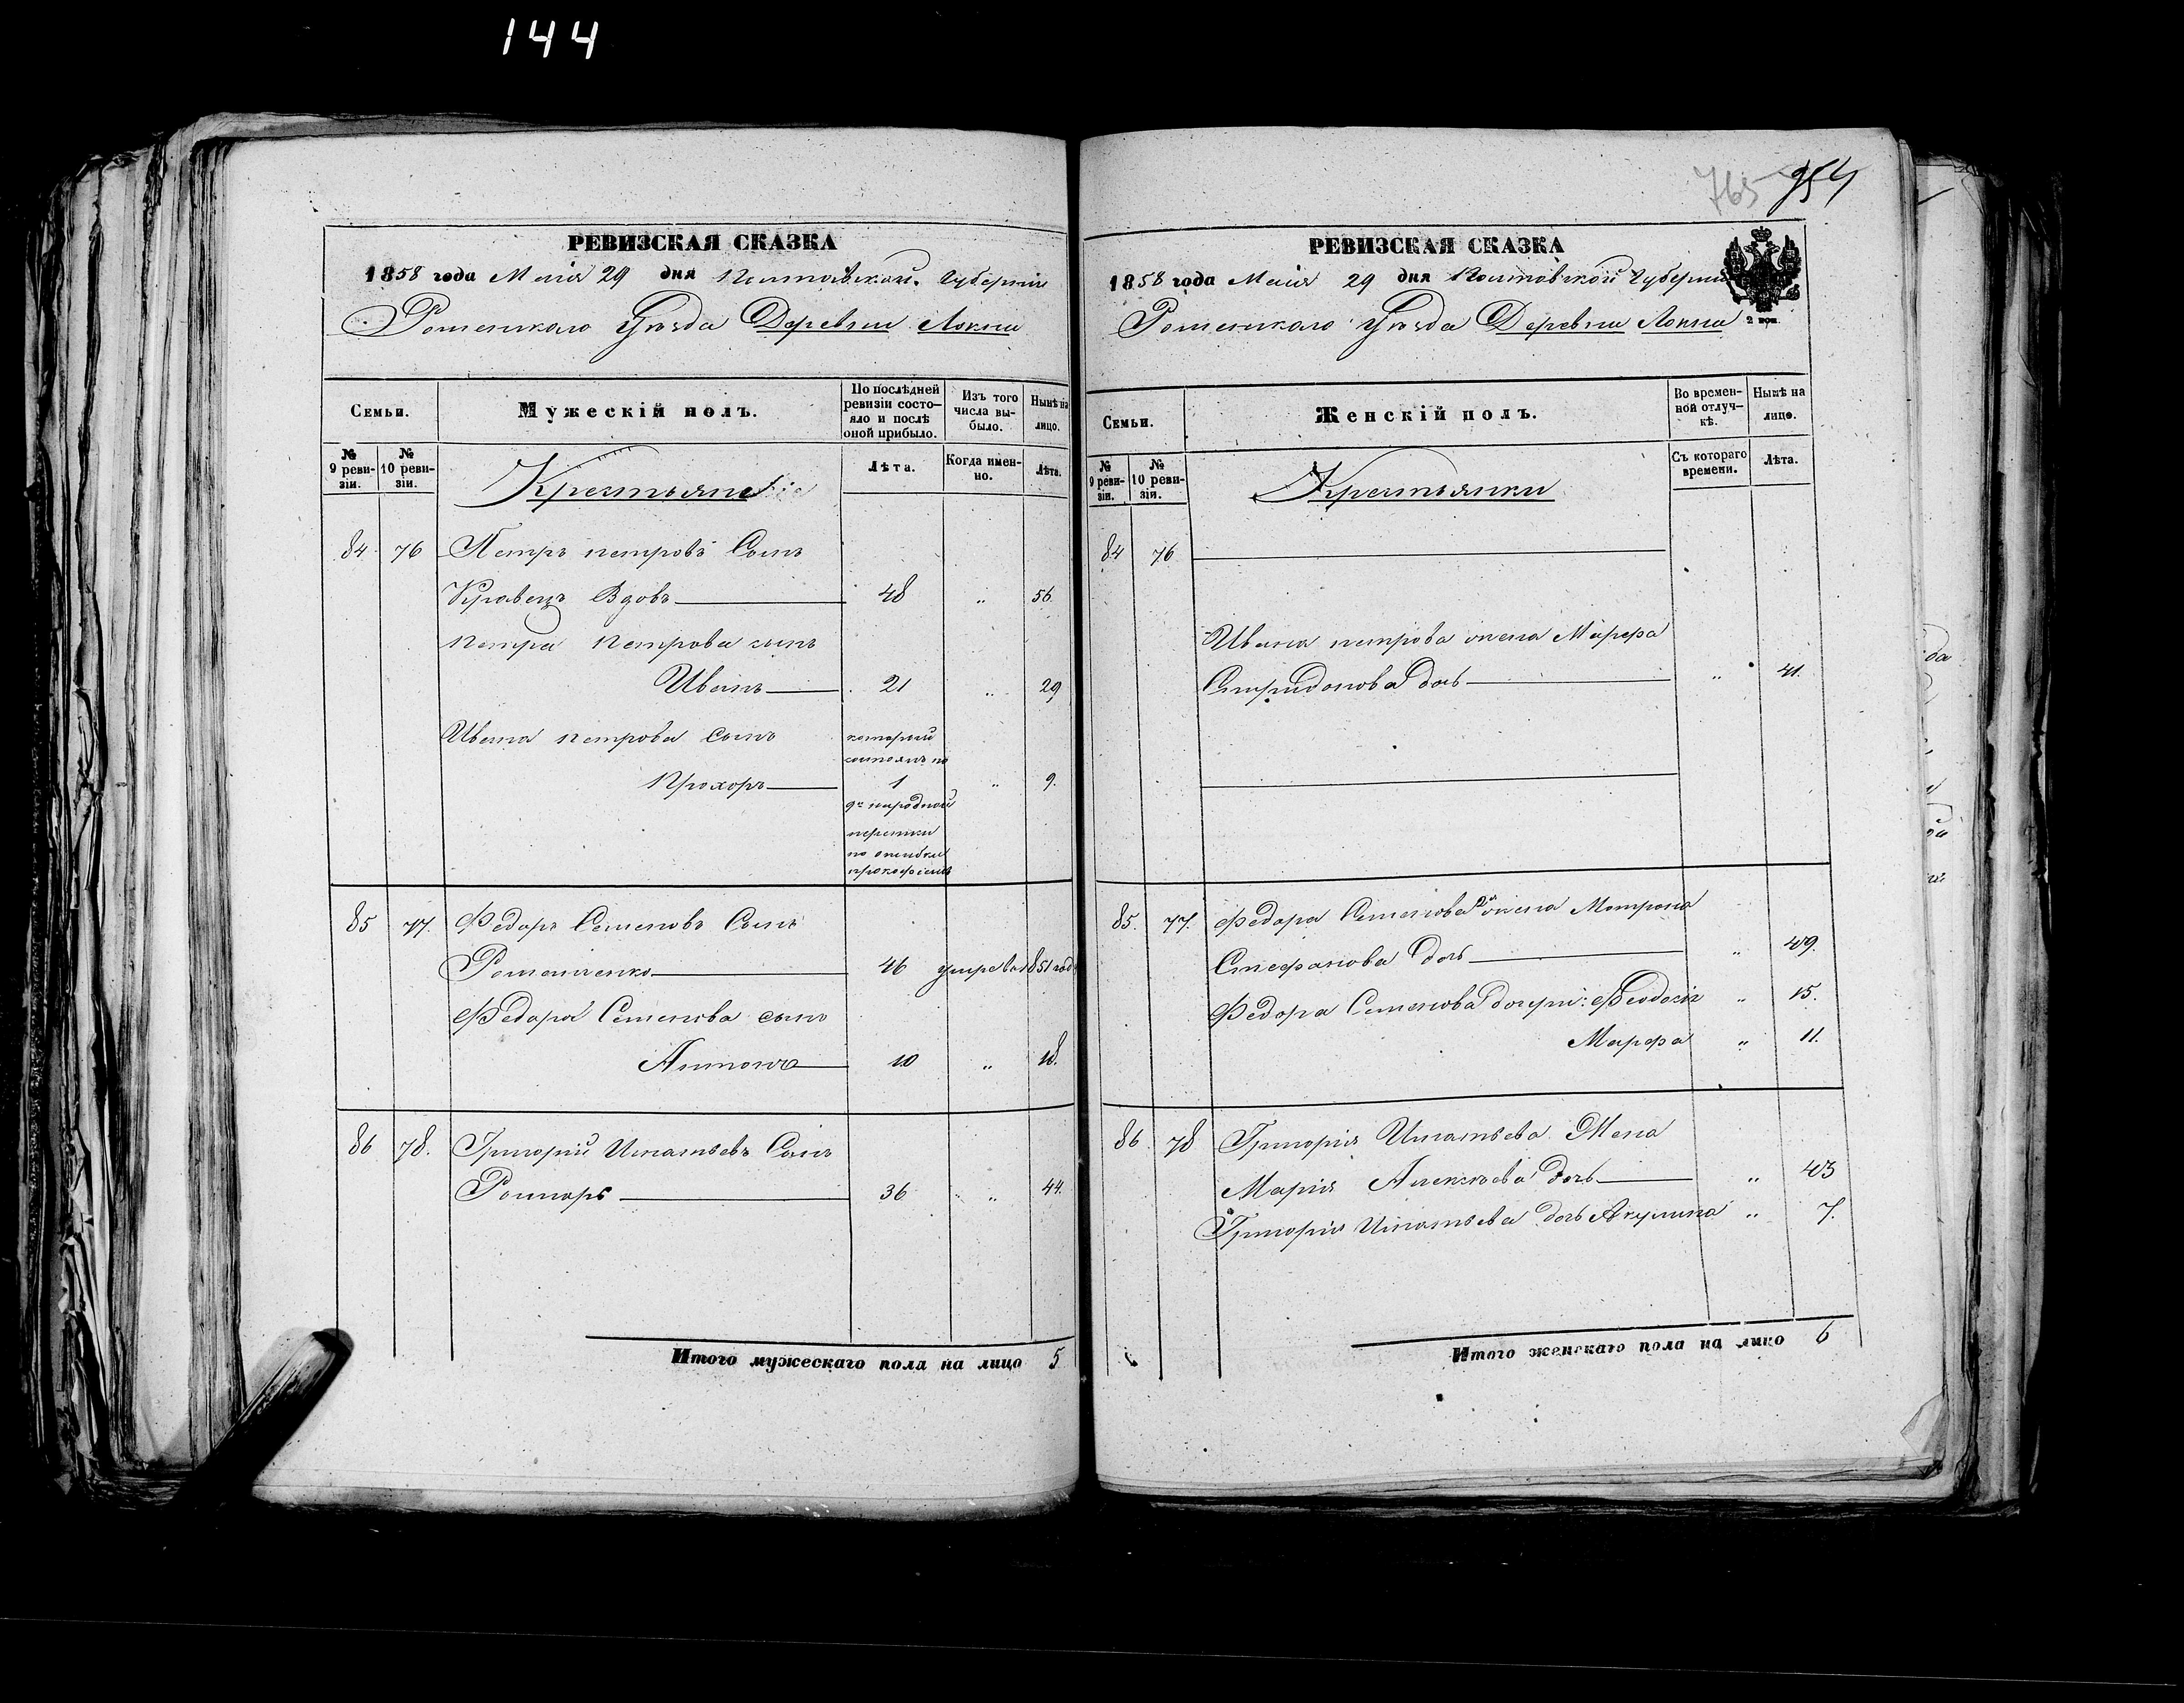 144
РЕВИЗСКАЯ СКАЗКА
1858 года Маія 29 дня Полтавской Губерніи
Роменскаго Уѣзда Деревни Локни
Семьи.
Мужескій полъ.
По послѣдней ревизіи состо-
яло и послѣ
оной прибыло.
Изъ того
числа вы-
было.
Нынѣ на
лицо.
№
9 реви-
зіи.
№
10 реви-
зіи.
Крестьяне
Лѣта.
Когда имен-
но.
Лѣта.
84. 76 Петръ петровъ Сынъ
Кравецъ Вдовъ 48 „ 56
петра Петрова сынъ
Иванъ 21 „ 29
Ивана петрова Сынъ который
состоялъ по
Прохоръ 1 „ 9.
9й народной
переписи
по ошибки
прокофіемъ
85 77. Федоръ Семеновъ Сынъ
Роменченко 46 умре въ 1851 год
Федора Семенова сынъ
Антонъ 10 „ 18.
86 78. Григорій Игнатьевъ Сынъ
36 „ 44.
Итого мужескаго пола на лицо 5
765 954
РЕВИЗСКАЯ СКАЗКА
1858 года Маія 29 дня Полтавской Губерніи
Роменскаго Уѣзда Деревни Локни 2 коп.
Семьи.
Женскій полъ.
Во времен-
ной отлуч-
кѣ.
Нынѣ на
лицо.
№
9 реви-
зіи.
№
10 реви-
зіи.
Крестьянки
Съ котораго
времени.
Лѣта.
84 76
Ивана петрова жена Марфа
Спиридонова дочь „ 41.
85. 77. Федора Семенова 2я жена Мотрона
Стефанова дочь „ 49.
Федора Семенова дочери: Феодосія „ 15.
Марфа „ 11.
86. 78 Григорія Игнатьева Жена
Марія Алексѣева дочь „ 43
Григорія Игнатьева дочь Акулина „ 7.
Итого женскаго пола на лицо 6